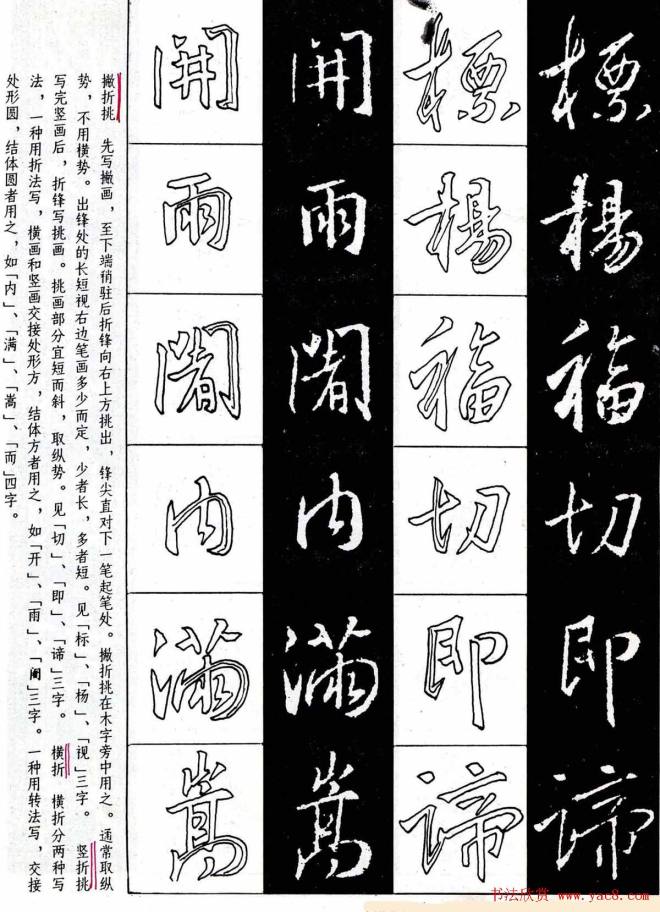 標楊福切即諦
標楊福切即諦
開雨闍内滿嵩
開雨闍内滿嵩
撇折挑 先写撇画，至下端稍驻后折锋向右上方挑出，锋尖直对下一笔起笔处。撇折挑在木字旁中用之。通常取纵
势，不用横势。出锋处的长短视右边笔画多少而定，少者长，多者短。见「标」、「杨」、「视」三字。 竖折挑
写完竖画后，折锋写挑画。挑画部分宜短而斜，取纵势。见「切」、「即」、「谛」三字。 横折 横折分两种写
法，一种用折法写，横画和竖画交接处形方，结体方者用之，如「开」、「雨」、「阇」三字。一种用转法写，交接
处形圆，结体圆者用之，如「内」、「满」、「嵩」、「而」四字。
书法欣赏 www.yac8.com